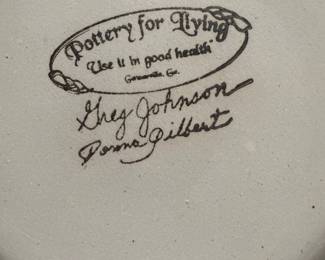 Pottery for Living
Use it in good health
Ga.
Greg Johnson
Donna Gilbert